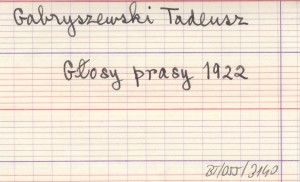 Gabryszewski Tadeusz
Głosy prasy 1922
BJ/OJJ/2140